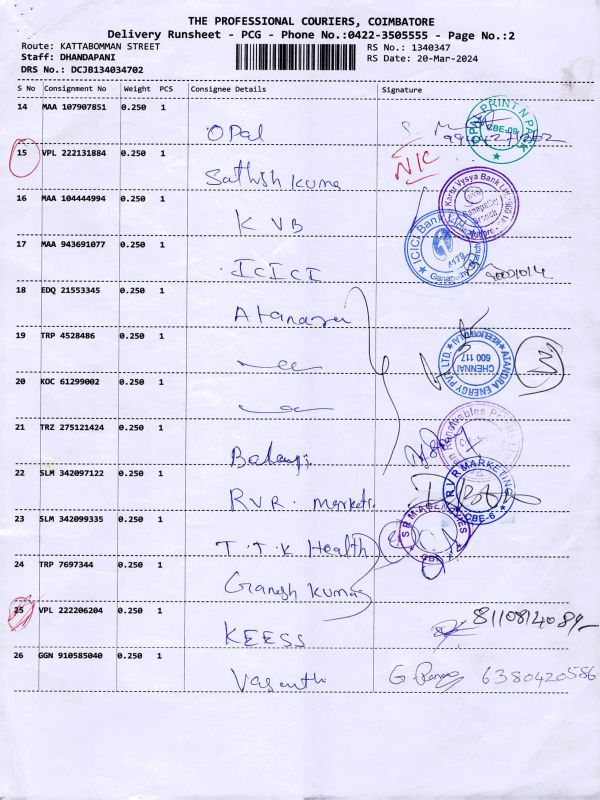 THE PROFESSIONAL COURIERS, COIMBATORE
Delivery Runsheet - PCG - Phone No.:0422-3505555 - Page No.:2
Route: KATTABOMMAN STREET
Staff: DHANDAPANI
DRS No.: DCJB134034702
RS No.: 1340347
RS Date: 20-Mar-2024
S No Consignment No Weight PCS Consignee Details Signature
14 MAA 107907851 0.250 1
Opal
OPAL PRINT N PACK
CBE-09
15 VPL 222131884 0.250 1
Sathish Kuma
N/C
16 MAA 104444994 0.250 1
KVB
Karur Vysya Bank
17 MAA 943691077 0.250 1
ICICI
ICICI Bank
18 EDQ 21553345 0.250 1
19 TRP 4528486 0.250 1
ATANDRA ENERGY PVT. LTD.
CHENNAI
600 117
3
20 KOC 61299002 0.250 1
21 TRZ 275121424 0.250 1
Balaji
22 SLM 342097122 0.250 1
RVR. Markets.
RVR MARKETING
CBE-6
23 SLM 342099335 0.250 1
T.T.K Health
SRM AGENCIES
24 TRP 7697344 0.250 1
Ganesh Kumar
25 VPL 222206204 0.250 1
KEESS
8110814089
26 GGN 910585040 0.250 1
Vasanth
6380420586